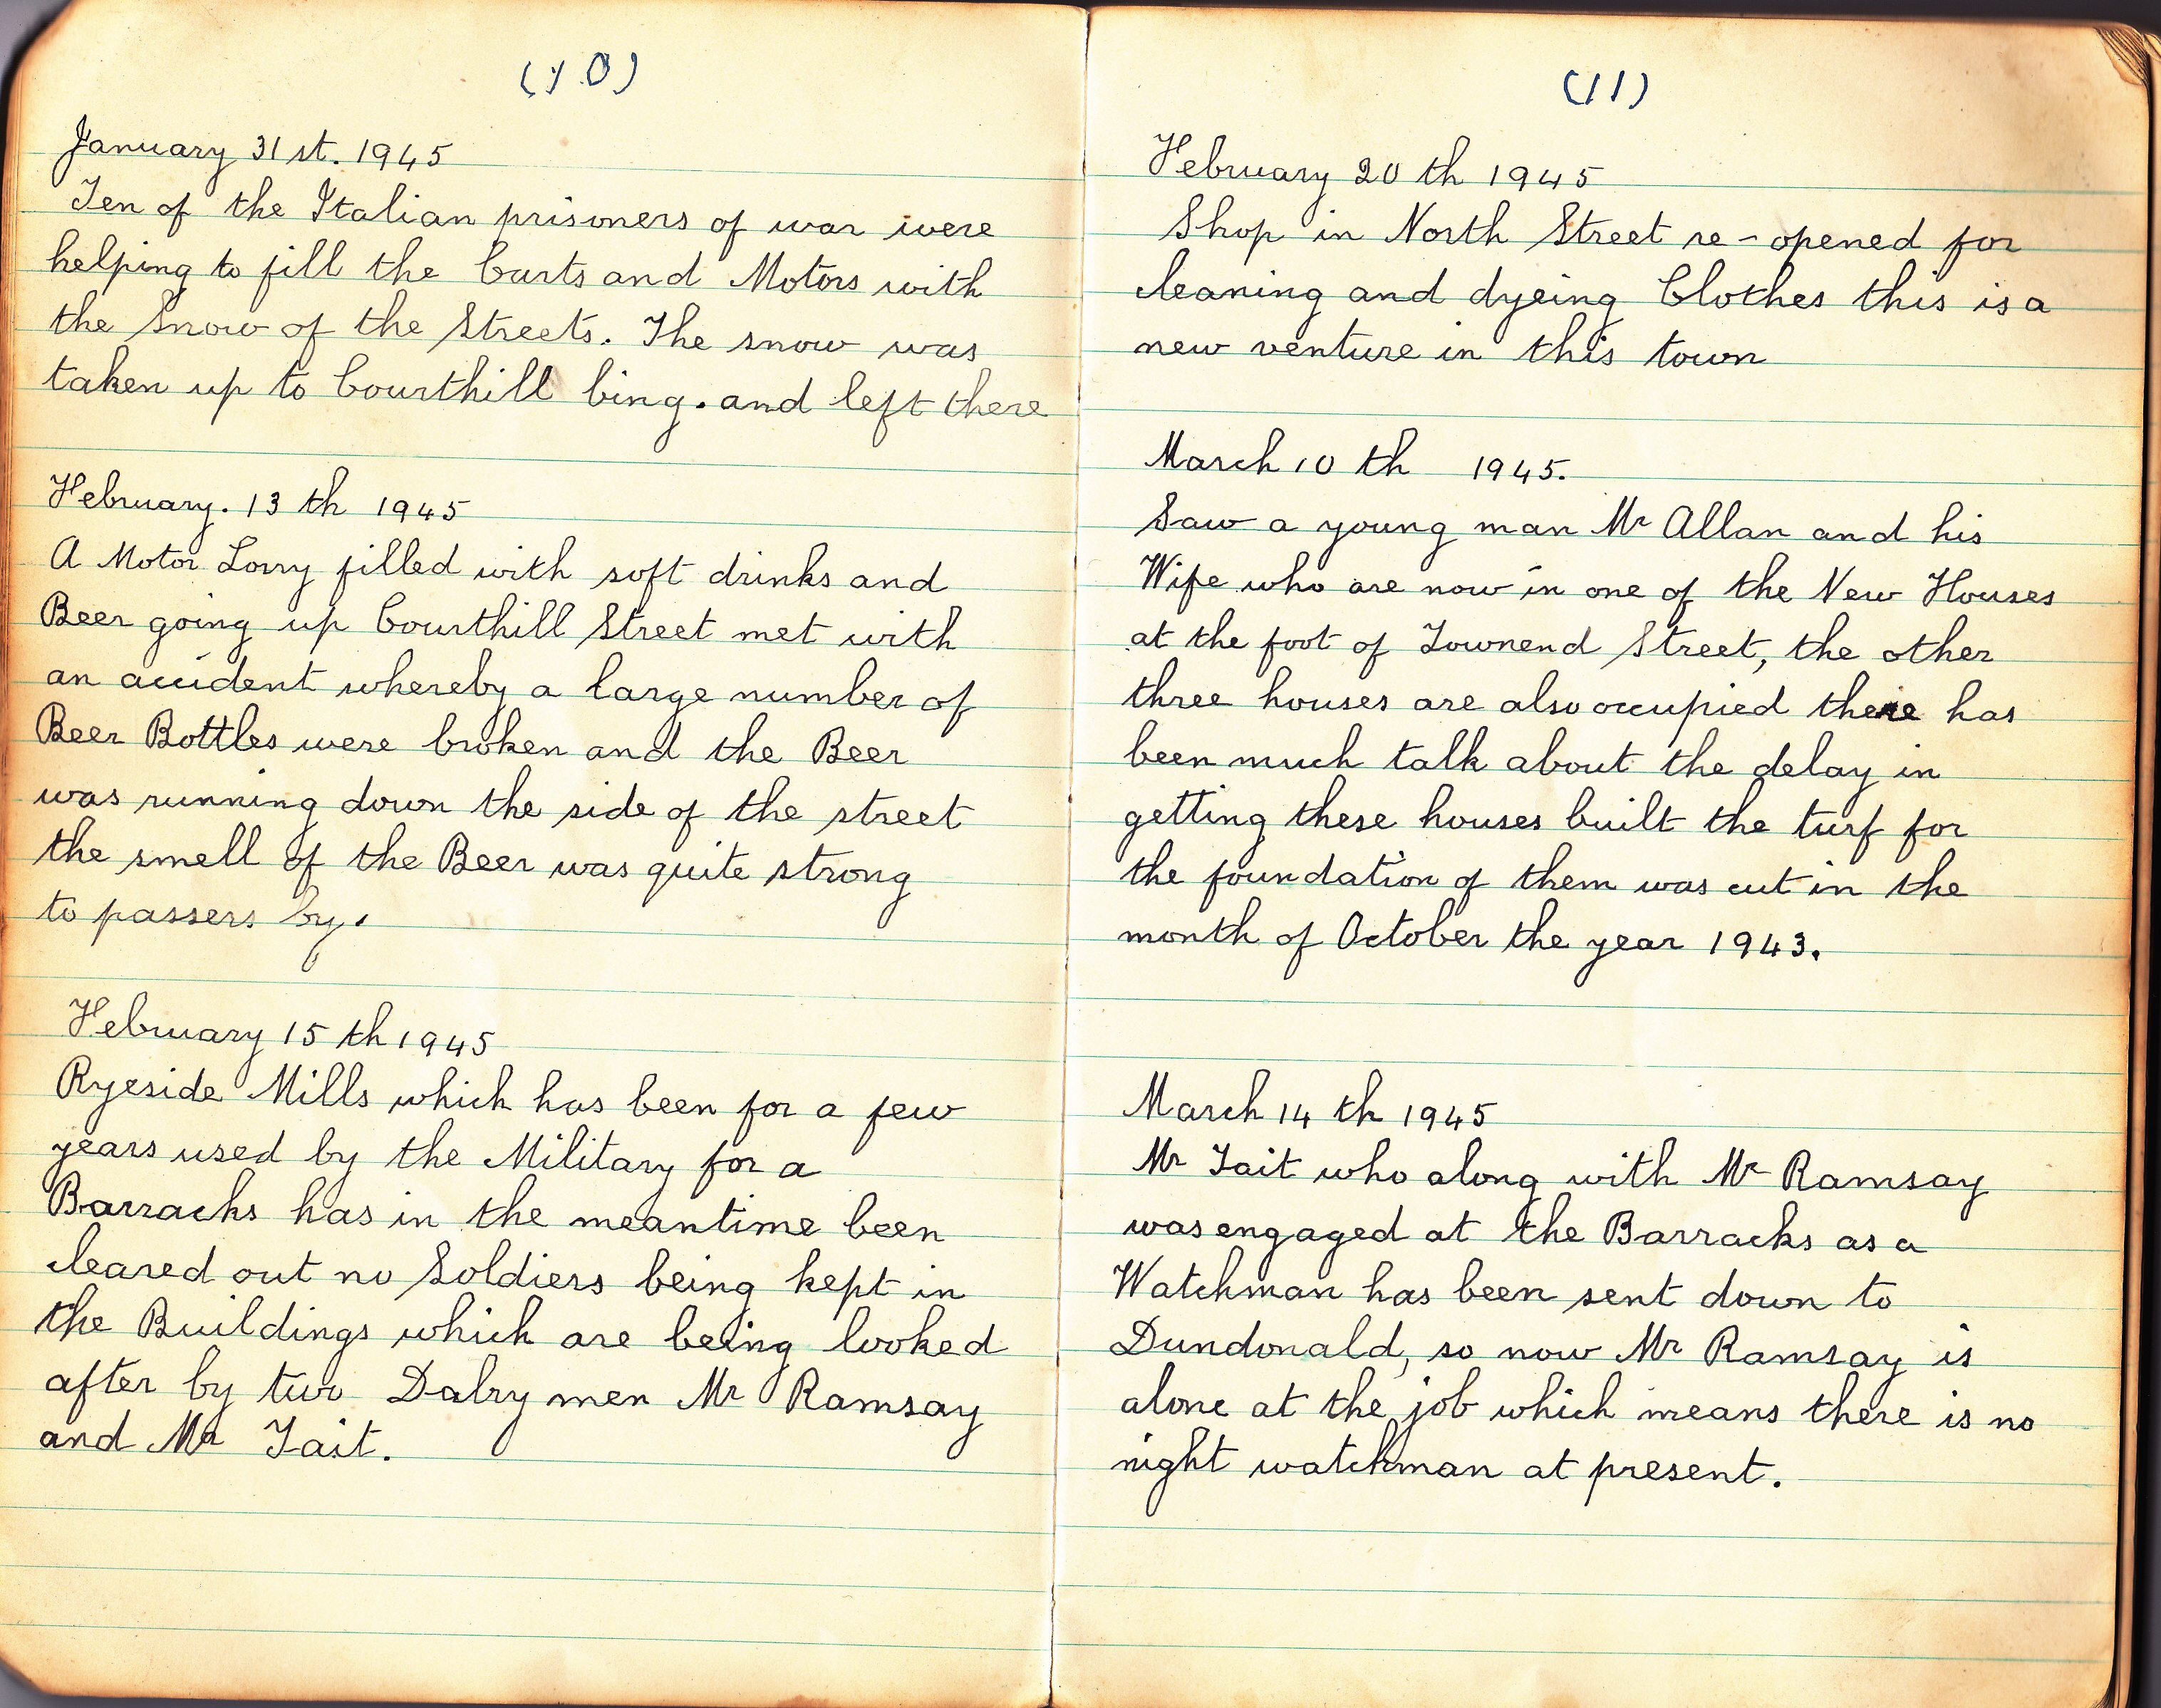 (10)
January 31st. 1945
Ten of the Italian prisoners of war were
helping to fill the Carts and Motors with
the Snow of the Streets. The snow was
taken up to Courthill bing. and left there
February. 13 th 1945
A Motor Lorry filled with soft drinks and
Beer going up Courthill Street met with
an accident whereby a large number of
Beer Bottles were broken and the Beer
was running down the side of the street
the smell of the Beer was quite strong
to passers by.
February 15 th 1945
Ryeside Mills which has been for a few
years used by the Military for a
Barracks has in the meantime been
cleared out no Soldiers being kept in
the Buildings which are being looked
after by two Dalry men Mr Ramsay
and Mr Tait.
(11)
February 20 th 1945
Shop in North Street re-opened for
cleaning and dyeing Clothes this is a
new venture in this town
March 10 th 1945.
Saw a young man Mr Allan and his
Wife who are now in one of the New Houses
at the foot of Townend Street, the other
three houses are also occupied there has
been much talk about the delay in
getting these houses built the turf for
the foundation of them was cut in the
month of October the year 1943.
March 14 th 1945
Mr Tait who along with Mr Ramsay
was engaged at the Barracks as a
Watchman has been sent down to
Dundonald, so now Mr Ramsay is
alone at the job which means there is no
night watchman at present.